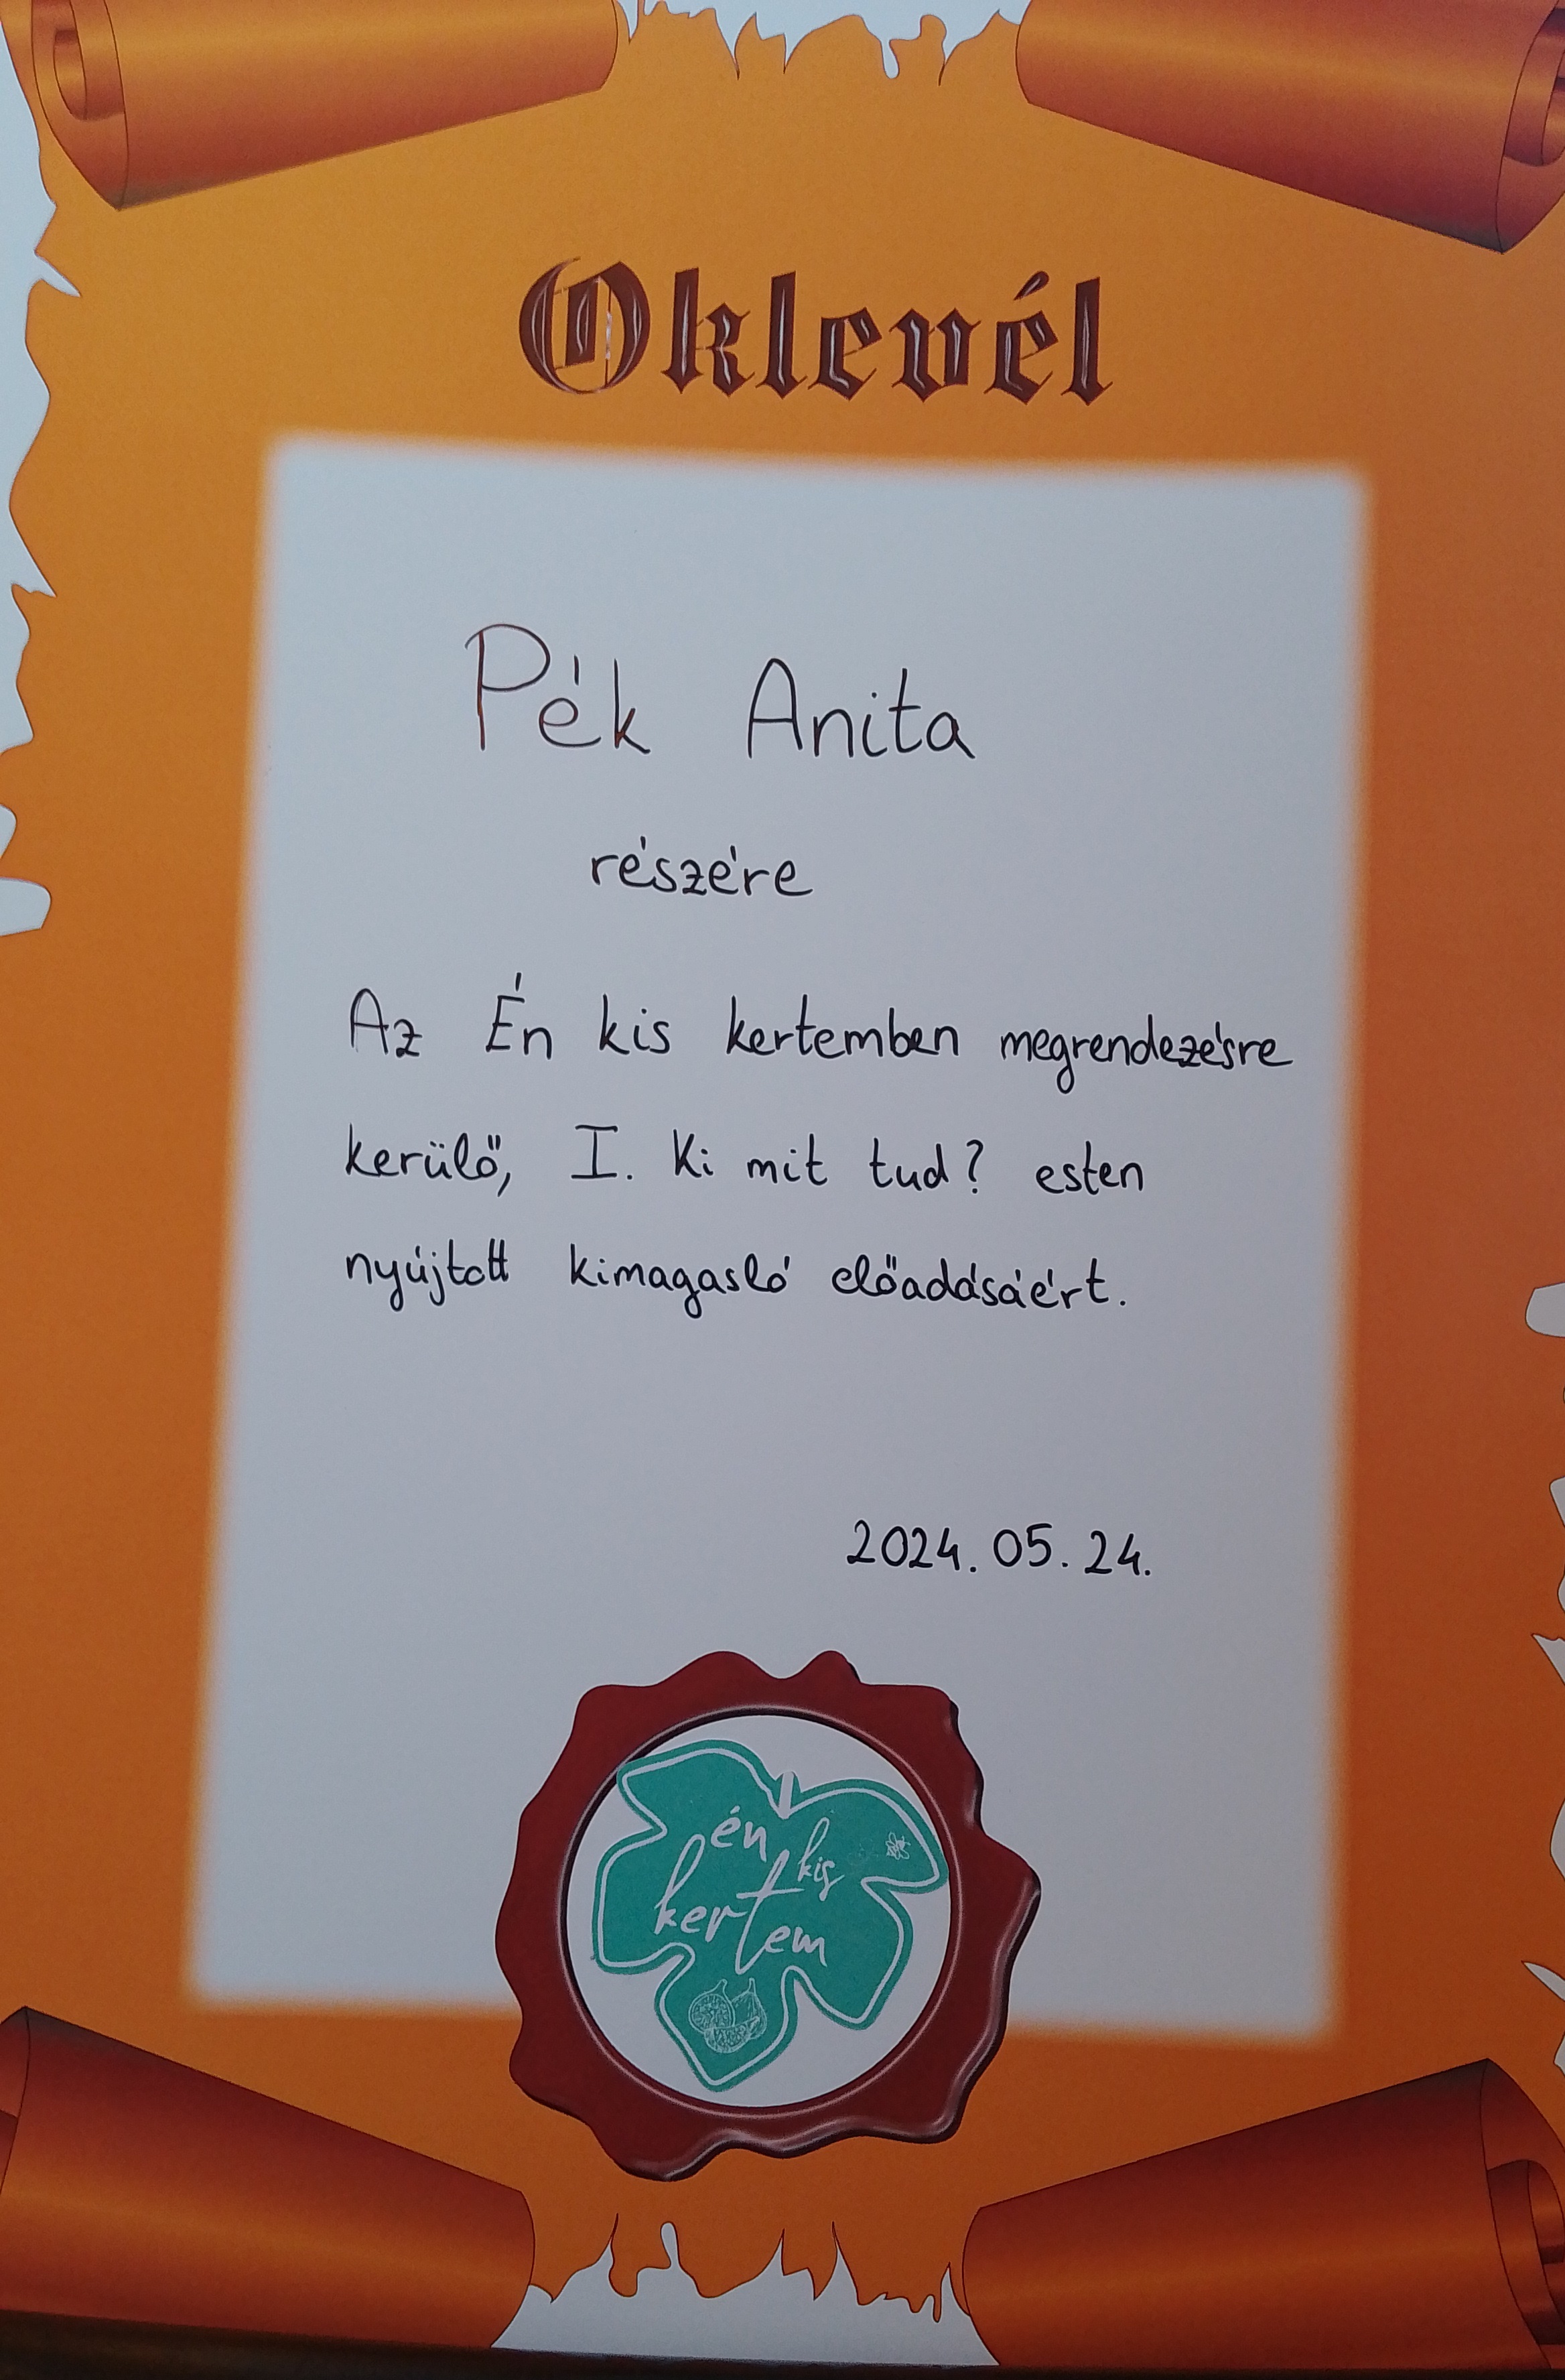 Oklevél
Pék Anita
részére
Az Én kis kertemben megrendezésre
kerülő, I. Ki mit tud? esten
nyújtott kimagasló előadásáért.
2024. 05. 24.
én kis
kertem